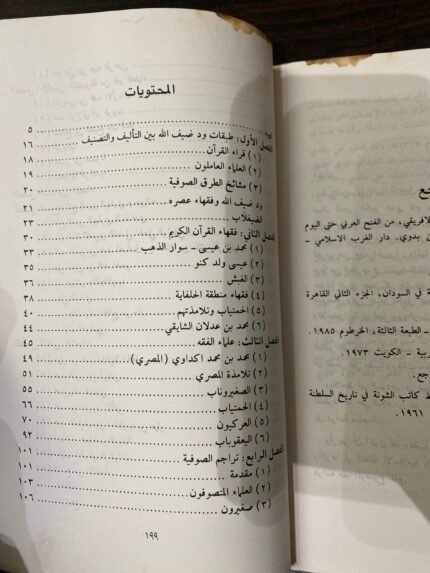 المحتويات
.......... ٥
الفصل الأول: طبقات ود ضيف الله بين التأليف والتصنيف
(١) قراء القرآن .......... ١٦
(٢) العلماء العاملون .......... ١٨
(٣) مشائخ الطرق الصوفية .......... ٢٠
ود ضيف الله وفقهاء عصره .......... ٢١
الضيفلاب .......... ٢٣
الفصل الثاني: فقهاء القرآن الكريم .......... ٣٠
(١) محمد بن عيسى ـ سوار الذهب .......... ٣٣
(٢) عيسى ولد كنو .......... ٣٥
(٣) الغبش .......... ٣٦
(٤) فقهاء منطقة الحلفاية .......... ٣٨
(٥) الحمتياب وتلامذتهم .......... ٤٠
(٦) محمد بن عدلان الشايقي .......... ٤٤
الفصل الثالث: علماء الفقه .......... ٤٥
(١) محمد بن محمد اكداوي (المصري) .......... ٤٩
(٢) تلامذة المصري .......... ٥١
(٣) الصغيروناب .......... ٥٥
(٤) الحمتياب .......... ٦٦
(٥) العركيون .......... ٧٠
(٦) اليعقوباب .......... ٩٢
الفصل الرابع: تراجم الصوفية .......... ١٠١
(١) مقدمة .......... ١٠١
(٢) العلماء المتصوفون .......... ١٠٣
(٣) صغيرون .......... ١٠٦
١٩٩
جع
لافريقي، من الفتح العربي حتى اليوم
ن بدوي. دار الغرب الاسلامي ـ
ة في السودان، الجزء الثاني القاهرة
ـ الطبعة الثالثة، الخرطوم ١٩٨٥.
ربية ـ الكويت ١٩٧٣.
جع.
ط كاتب الشونة في تاريخ السلطنة
١٩٦١.